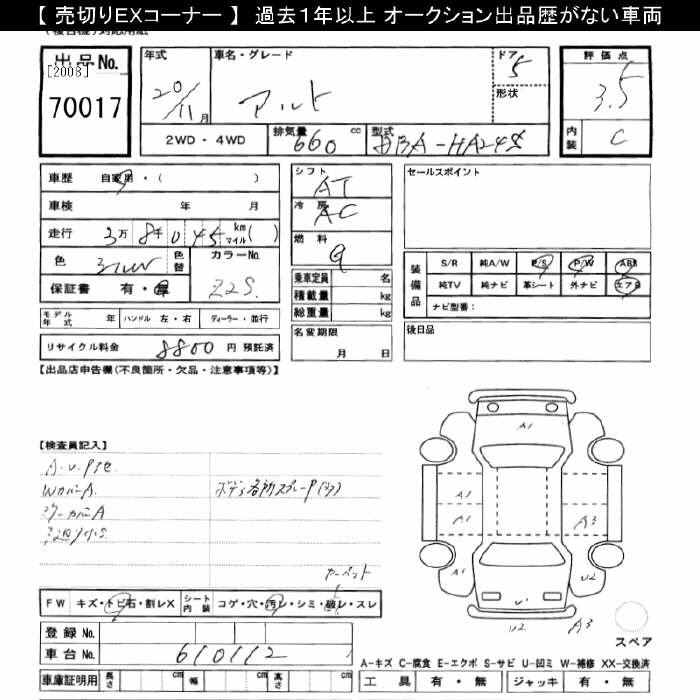 【 売切りEXコーナー 】 過去1年以上 オークション出品歴がない車両
出品No.
[2008]
70017
年式
20/11月
車名・グレード
アルト
ドア
5
形状
評価点
3.5
内装
C
2WD・4WD
排気量
660
cc
型式
DBA-HA24S
車歴 自家用・( )
車検 年 月
走行 3万8千045 km マイル( )
色
色替
カラーNo.
Z2S
保証書 有・無
モデル年式 年
ハンドル 左・右
ディーラー・並行
リサイクル料金 8800 円 預託済
シフト
AT
冷房
AC
燃料
乗車定員 名
積載量 kg
総重量 kg
名変期限
月 日
セールスポイント
装備品
S/R 純A/W P/S P/W ABS
純TV 純ナビ 革シート 外ナビ エアB
ナビ型番:
後日品
【出品店申告欄(不良箇所・欠品・注意事項等)】
【検査員記入】
A.U.
WカバーA
ボデー各所スプレーP
ミラーカバーA
カーペット
FW キズ・トビ石・割レX シート内装 コゲ・穴・汚レ・シミ・破レ・スレ
登録 No.
車台 No. 610112
車庫証明用 長さ cm 幅 cm 高さ cm
A1
A1
A1
A1
A3
U2
U1
U2
A3
スペア
A-キズ C-腐食 E-エクボ S-サビ U-凹ミ W-補修 XX-交換済
工具 有・無 ジャッキ 有・無